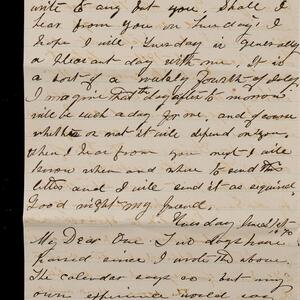 write to any but you. Shall I
hear from you on Tuesday? I
hope I will Tuesday is generally
a pleasant day with me. It is
a sort of a weekly fourth of July
I imagine that the day after to morrow
will be such a day for me, and of course
whether or not it will depend on you.
When I hear from you next I will
know when and where to send this
letter and I will send it as required
Good night my friend.
Tuesday June 21st
My Dear One. Two days have
passed since I wrote the above.
The calender says so but my
own experience would say